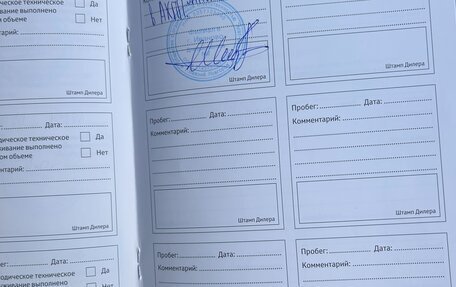 одическое техническое
живание выполнено
ом объеме
Да
Нет
ентарий:
Штамп Дилера
Штамп Дилера
Штамп Дилера
Дата:
одическое техническое
живание выполнено
ом объеме
Да
Нет
ентарий:
Штамп Дилера
Пробег: Дата:
Комментарий:
Штамп Дилера
Пробег: Дата:
Комментарий:
Штамп Дилера
Дата:
одическое техническое
живание выполнено
Да
Нет
Пробег: Дата:
Комментарий:
Пробег: Дата:
Комментарий: